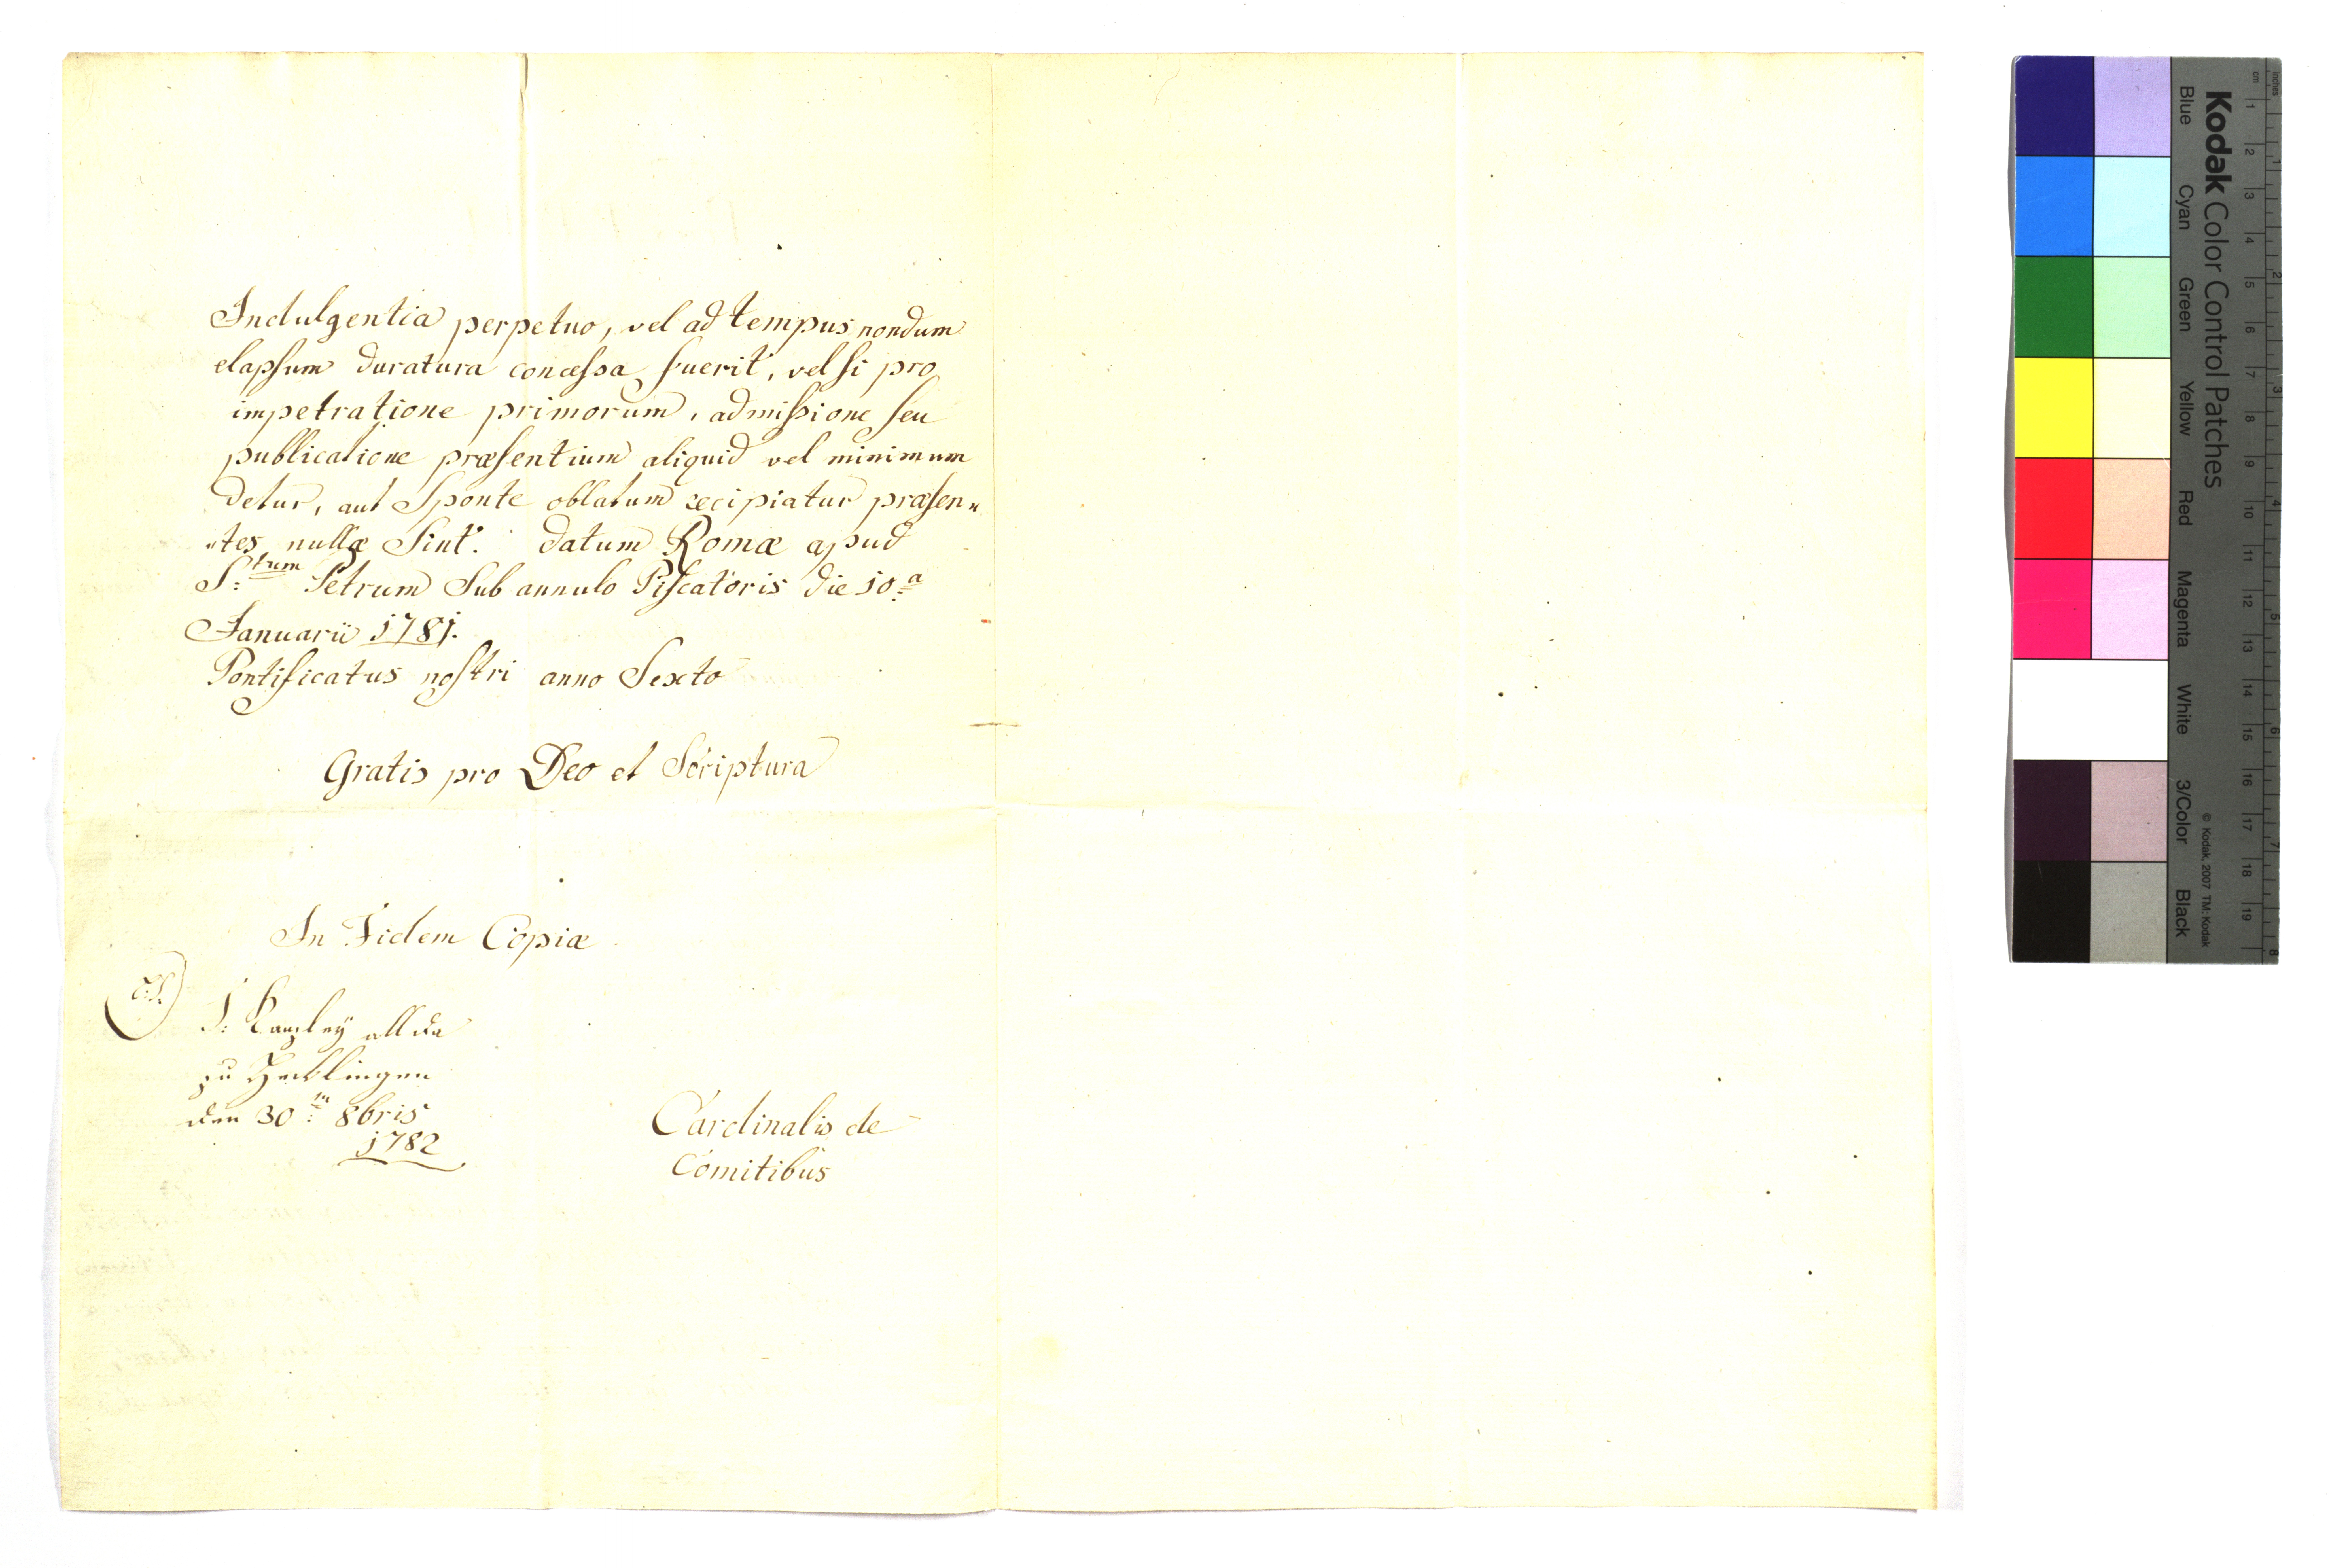 Indulgentia perpetuo, vel ad tempus nondum
elapsum duratura concessa fuerit, vel si pro
impetratione primorum, admissione seu
publicatione præsentium aliquid vel minimum
detur, aut Sponte oblatum recipiatur præsen„
„tes nullæ Sint. datum Romæ apud
S:trum Petrum Sub annulo Piscatoris die 10:a
Januarii 1781.
Pontificatus nostri anno Sexto
Gratis pro Deo et Scriptura
In Fidem Copiæ
L:S.
Kanzley allda
zu
den 30:n 8bris
1782
Cardinalis de
Comitibus
Kodak Color Control Patches
Blue Cyan Green Yellow Red Magenta White 3/Color Black
© Kodak, 2007 TM: Kodak
cm 1 2 3 4 5 6 7 8 9 10 11 12 13 14 15 16 17 18 19
inches 1 2 3 4 5 6 7 8